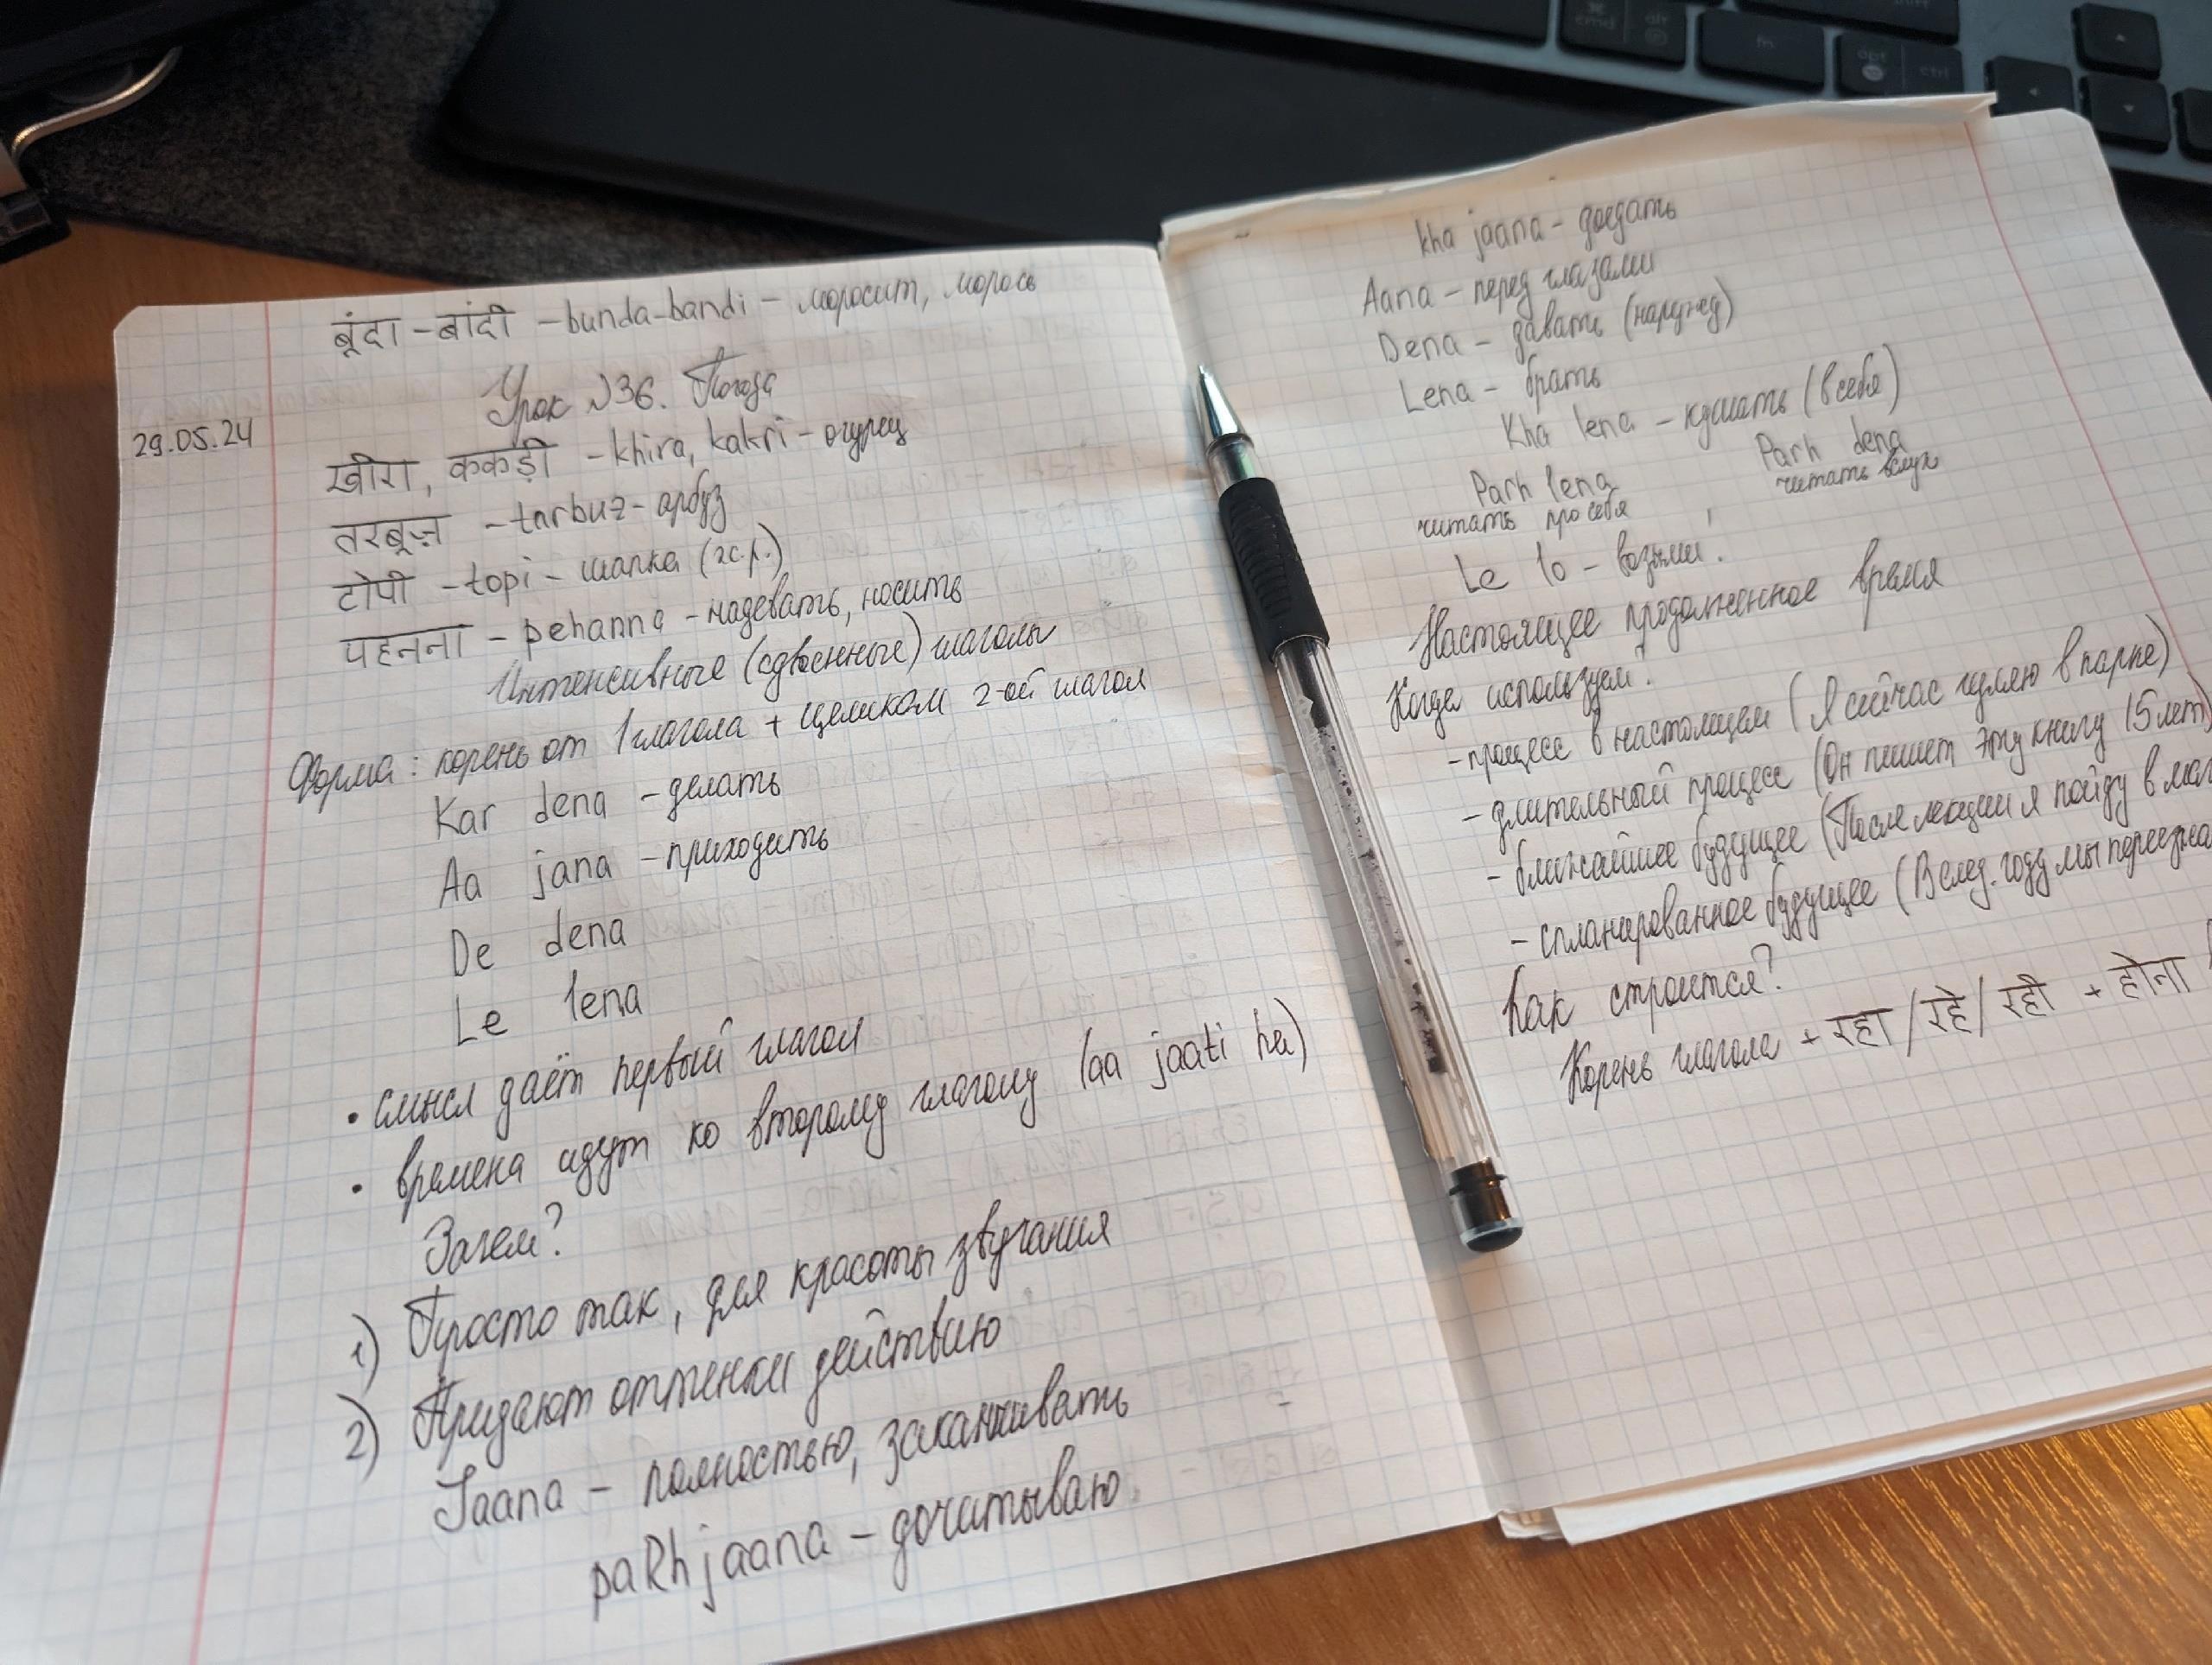 बूंदा-बांदी - bunda-bandi - моросит, морось
Урок №36. Погода
29.05.24
खीरा, ककड़ी - khira, kakri - огурец
तरबूज़ - tarbuz - арбуз
टोपी - topi - шапка (ж.р.)
पहनना - pehanna - надевать, носить
Интенсивные (сдвоенные) глаголы
Форма: корень от 1 глагола + целиком 2-ой глагол
Kar dena - делать
Aa jana - приходить
De dena
Le lena
• смысл даёт первый глагол
• времена идут ко второму глаголу (aa jaati he)
Зачем?
1) Просто так, для красоты звучания
2) Придают оттенки действию
Jaana - полностью, заканчивать
paRh jaana - дочитываю
kha jaana - доедать
Aana - перед глазами
Dena - давать (наружу)
Lena - брать
Kha lena - кушать (в себя)
Parh lena Parh dena
читать про себя читать вслух
Le lo - возьми!
Настоящее продолженное время
Когда используем?
- процесс в настоящем (Я сейчас гуляю в парке)
- длительный процесс (Он пишет эту книгу 15 лет)
- ближайшее будущее (После лекции я пойду в маг
- спланированное будущее (В след. году мы переезжа
Как строится?
Корень глагола + रहा / रहे / रही + होना